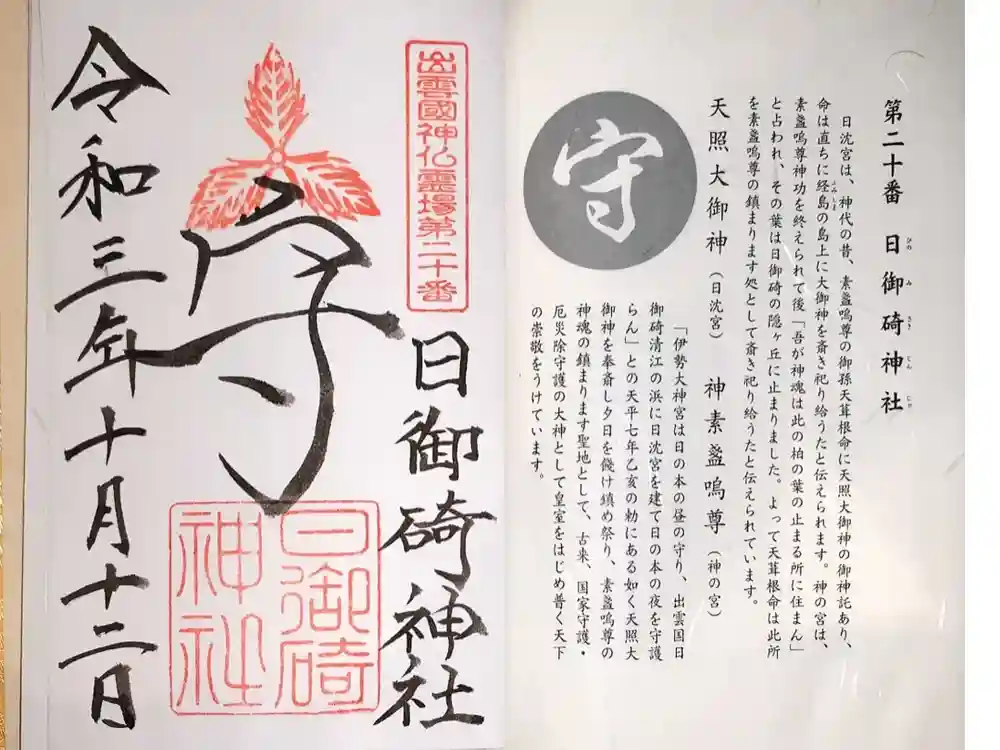 第二十番 日御碕神社
日沈宮は、神代の昔、素盞嗚尊の御孫天葺根命に天照大御神の御神託あり、
命は直ちに経島の島上に大御神を斎き祀り給うたと伝えられます。神の宮は、
素盞嗚尊神功を終えられて後「吾が神魂は此の柏の葉の止まる所に住まん」
と占われ、その葉は日御碕の隠ヶ丘に止まりました。よって天葺根命は此所
を素盞嗚尊の鎮まります処として斎き祀り給うたと伝えられています。
天照大御神(日沈宮) 神素盞嗚尊(神の宮)
守
「伊勢大神宮は日の本の昼の守り、出雲国日
御碕清江の浜に日沈宮を建て日の本の夜を守護
らん」との天平七年乙亥の勅にある如く天照大
御神を奉斎し夕日を餞け鎮め祭り、素盞嗚尊の
神魂の鎮まります聖地として、古来、国家守護・
厄災除守護の大神として皇室をはじめ普く天下
の崇敬をうけています。
出雲國神仏霊場第二十番
日御碕神社
守
日御碕
神社
令和三年十月十二日